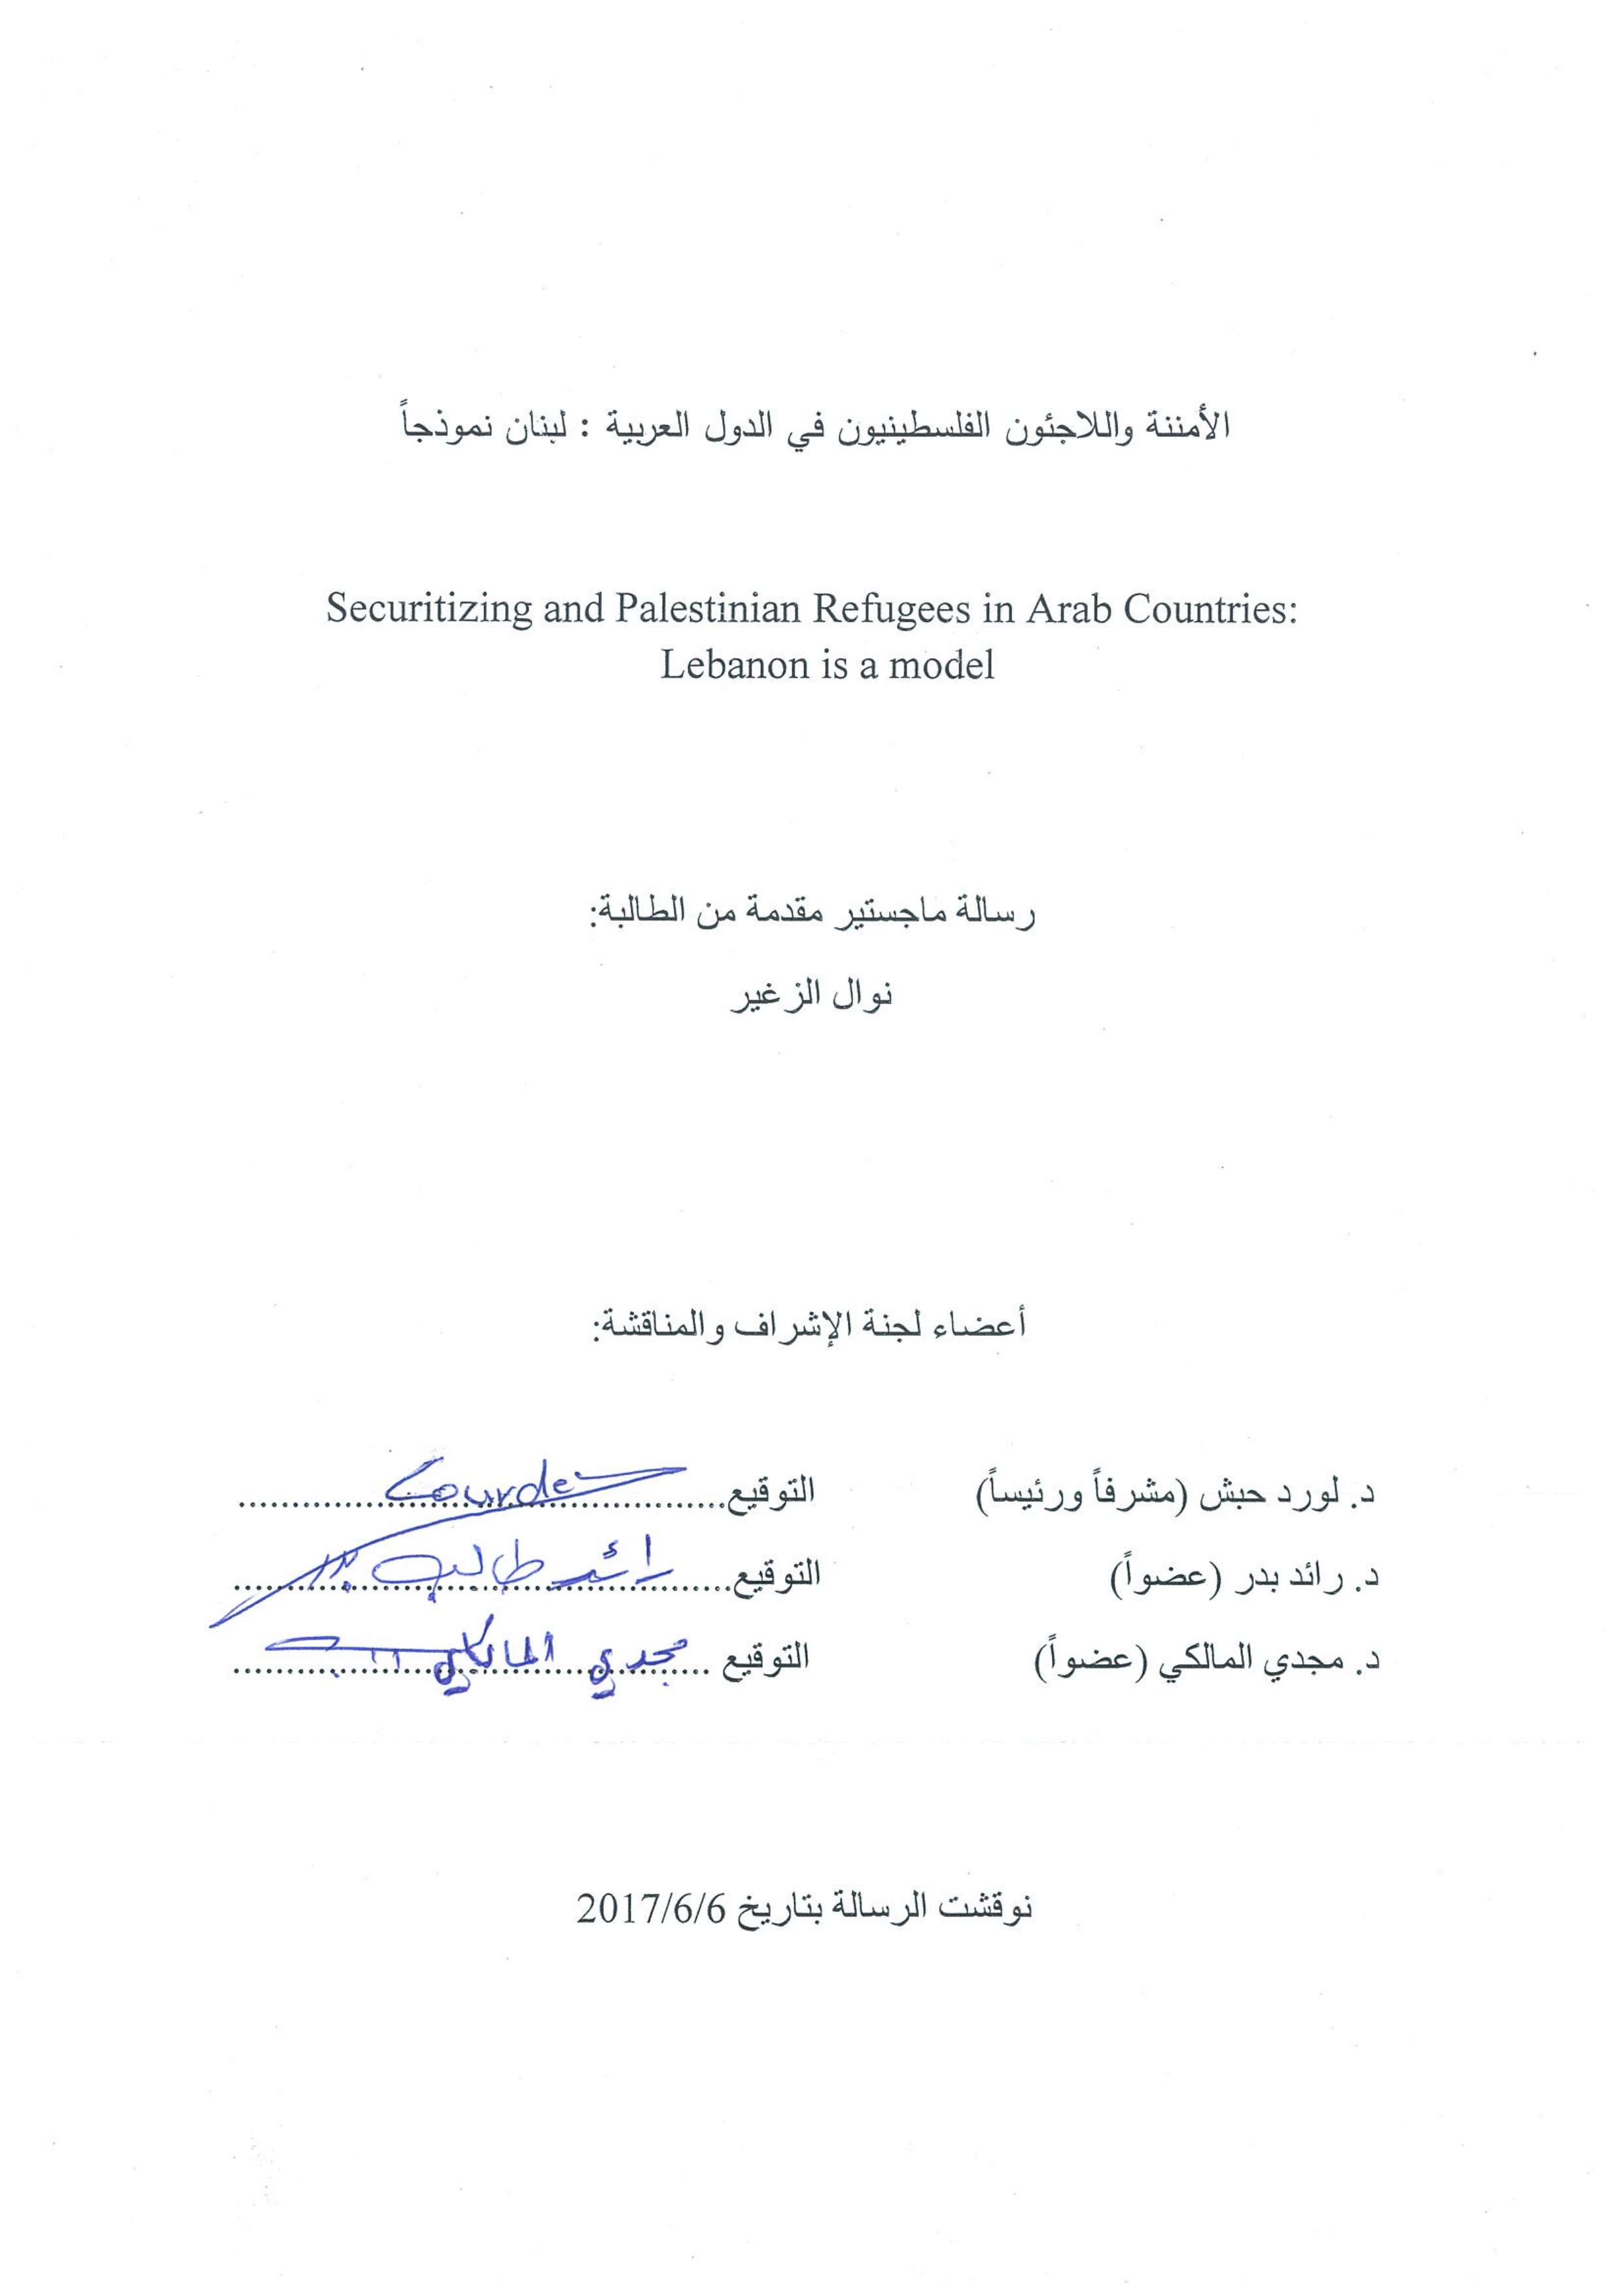 الأمننة واللاجئون الفلسطينيون في الدول العربية : لبنان نموذجاً
Securitizing and Palestinian Refugees in Arab Countries:
Lebanon is a model
رسالة ماجستير مقدمة من الطالبة:
نوال الزغير
أعضاء لجنة الإشراف والمناقشة:
د. لورد حبش (مشرفاً ورئيساً) التوقيع Lourde
د. رائد بدر (عضواً) التوقيع رائد طالب بدر
د. مجدي المالكي (عضواً) التوقيع مجدي المالكي
نوقشت الرسالة بتاريخ 2017/6/6